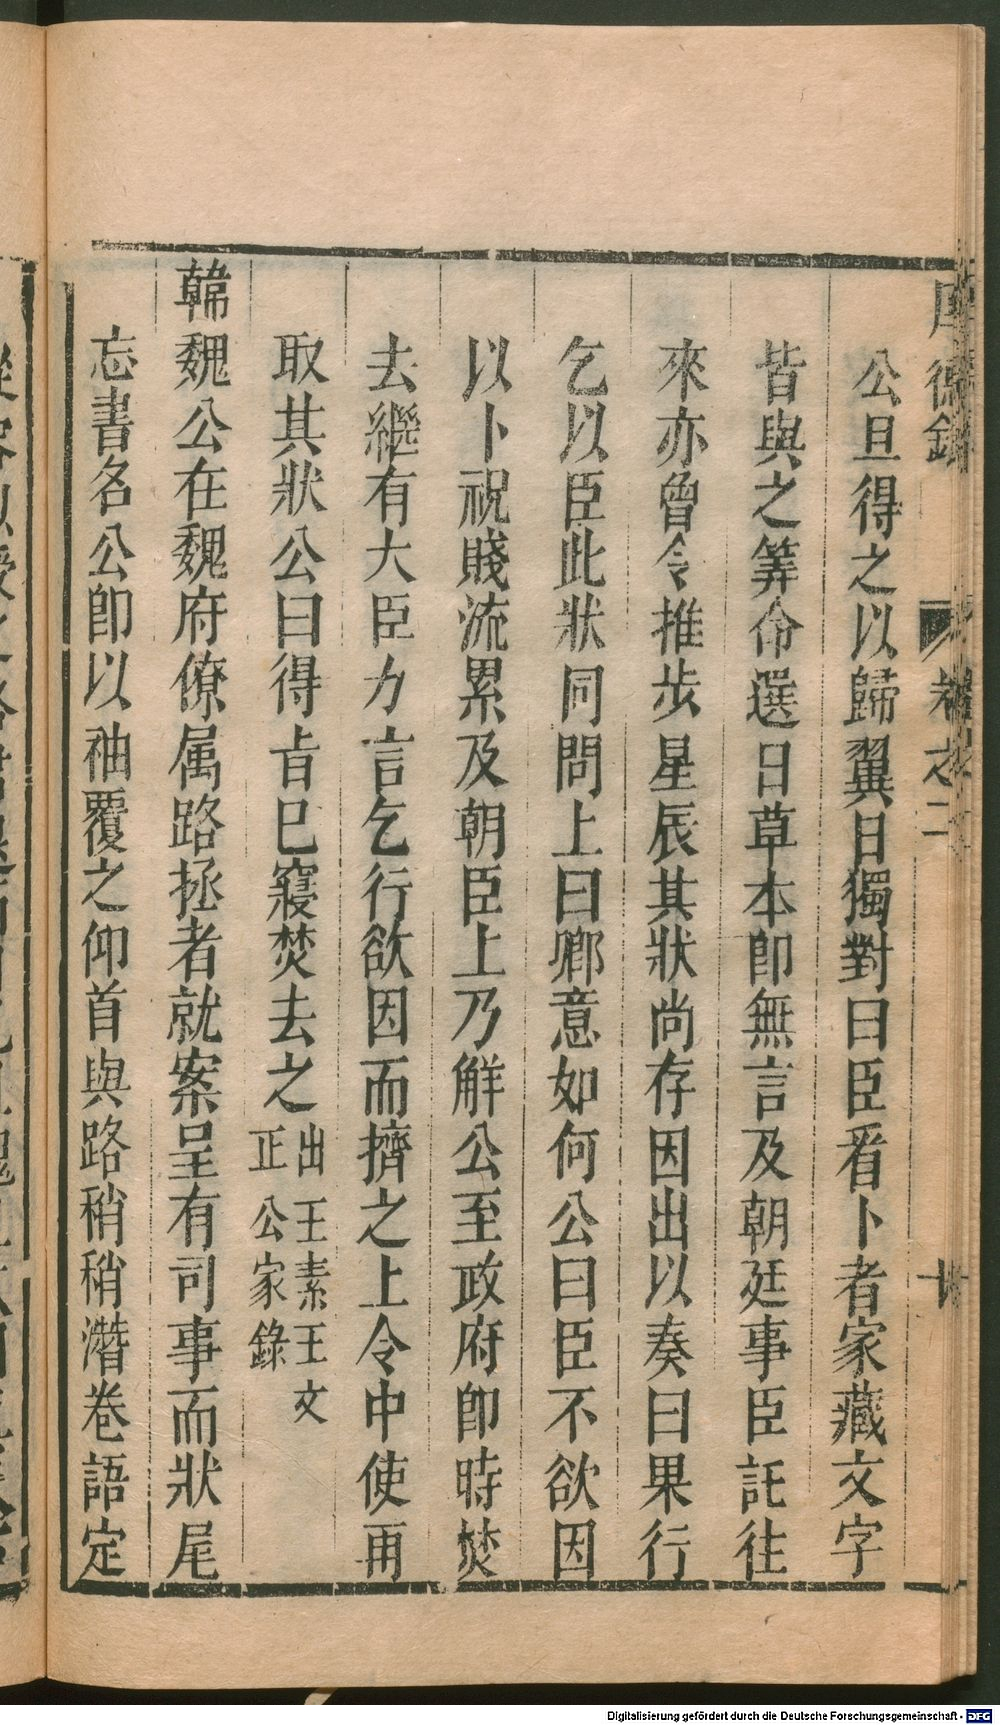 公旦得之以歸翼日獨對曰臣看卜者家藏文字
皆與之筭命選日草本卽無言及朝廷事臣託往
來亦曾令推步星辰其狀尚存因出以奏曰果行
乞以臣此狀同問上曰卿意如何公曰臣不欲因
以卜祝賤流累及朝臣上乃解公至政府卽時焚
去繼有大臣力言乞行欲因而擠之上令中使再
取其狀公曰得旨已寢焚去之
出王素王文
正公家錄
韓魏公在魏府僚属路拯者就案呈有司事而狀尾
忘書名公卽以袖覆之仰首與路稍稍潛卷語定
卷之二
Digitalisierung gefördert durch die Deutsche Forschungsgemeinschaft - DFG